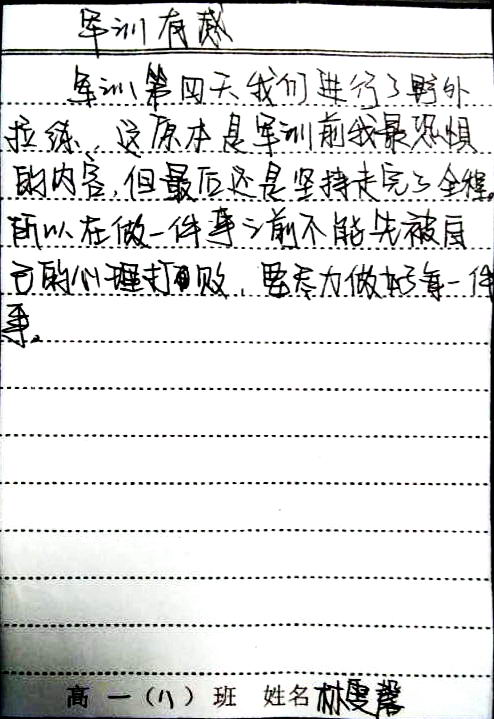 军训有感
军训第四天我们进行了野外
拉练、这原本是军训前我最恐惧
的内容,但最后还是坚持走完了全程。
所以在做一件事之前不能先被自
己的心理打败,要尽力做好每一件
事。
高一(八)班 姓名林雯馨